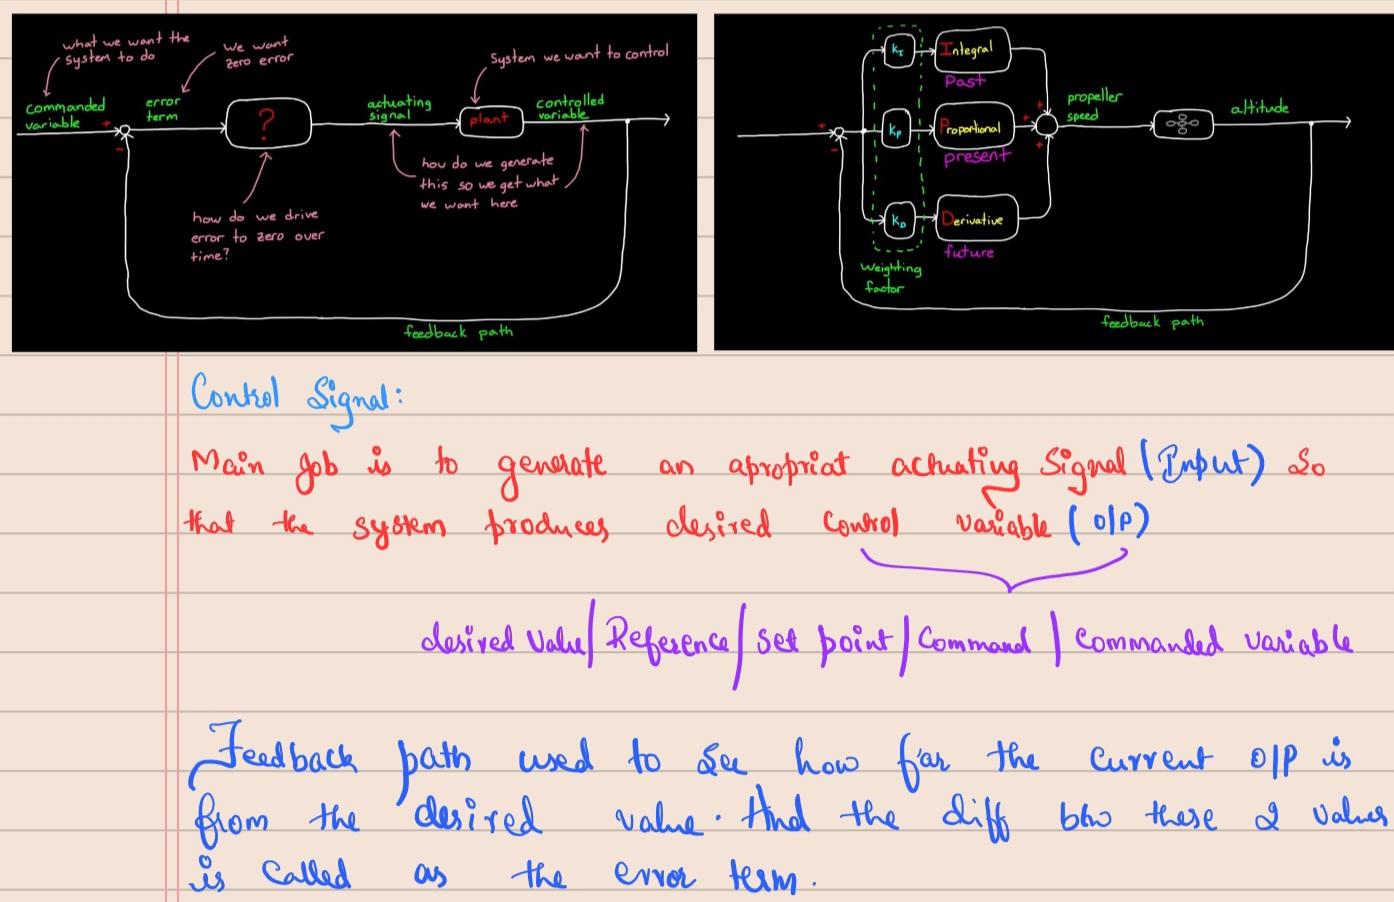 what we want the
system to do
we want
zero error
System we want to control
commanded
variable
error
term
actuating
signal
controlled
variable
+
-
?
plant
how do we generate
this so we get what
we want here
how do we drive
error to zero over
time?
feedback path
KI
Integral
Past
+
-
KP
Proportional
present
+
+
+
propeller
speed
altitude
KD
Derivative
future
Weighting
factor
feedback path
Control Signal:
Main job is to generate an apropriat actuating Signal (Input) So
that the system produces desired Control variable (O/P)
desired Value/ Reference/ Set point/ Command / Commanded variable
Feedback path used to see how far the current O/P is
from the desired value. And the diff btw these 2 values
is called as the error term.